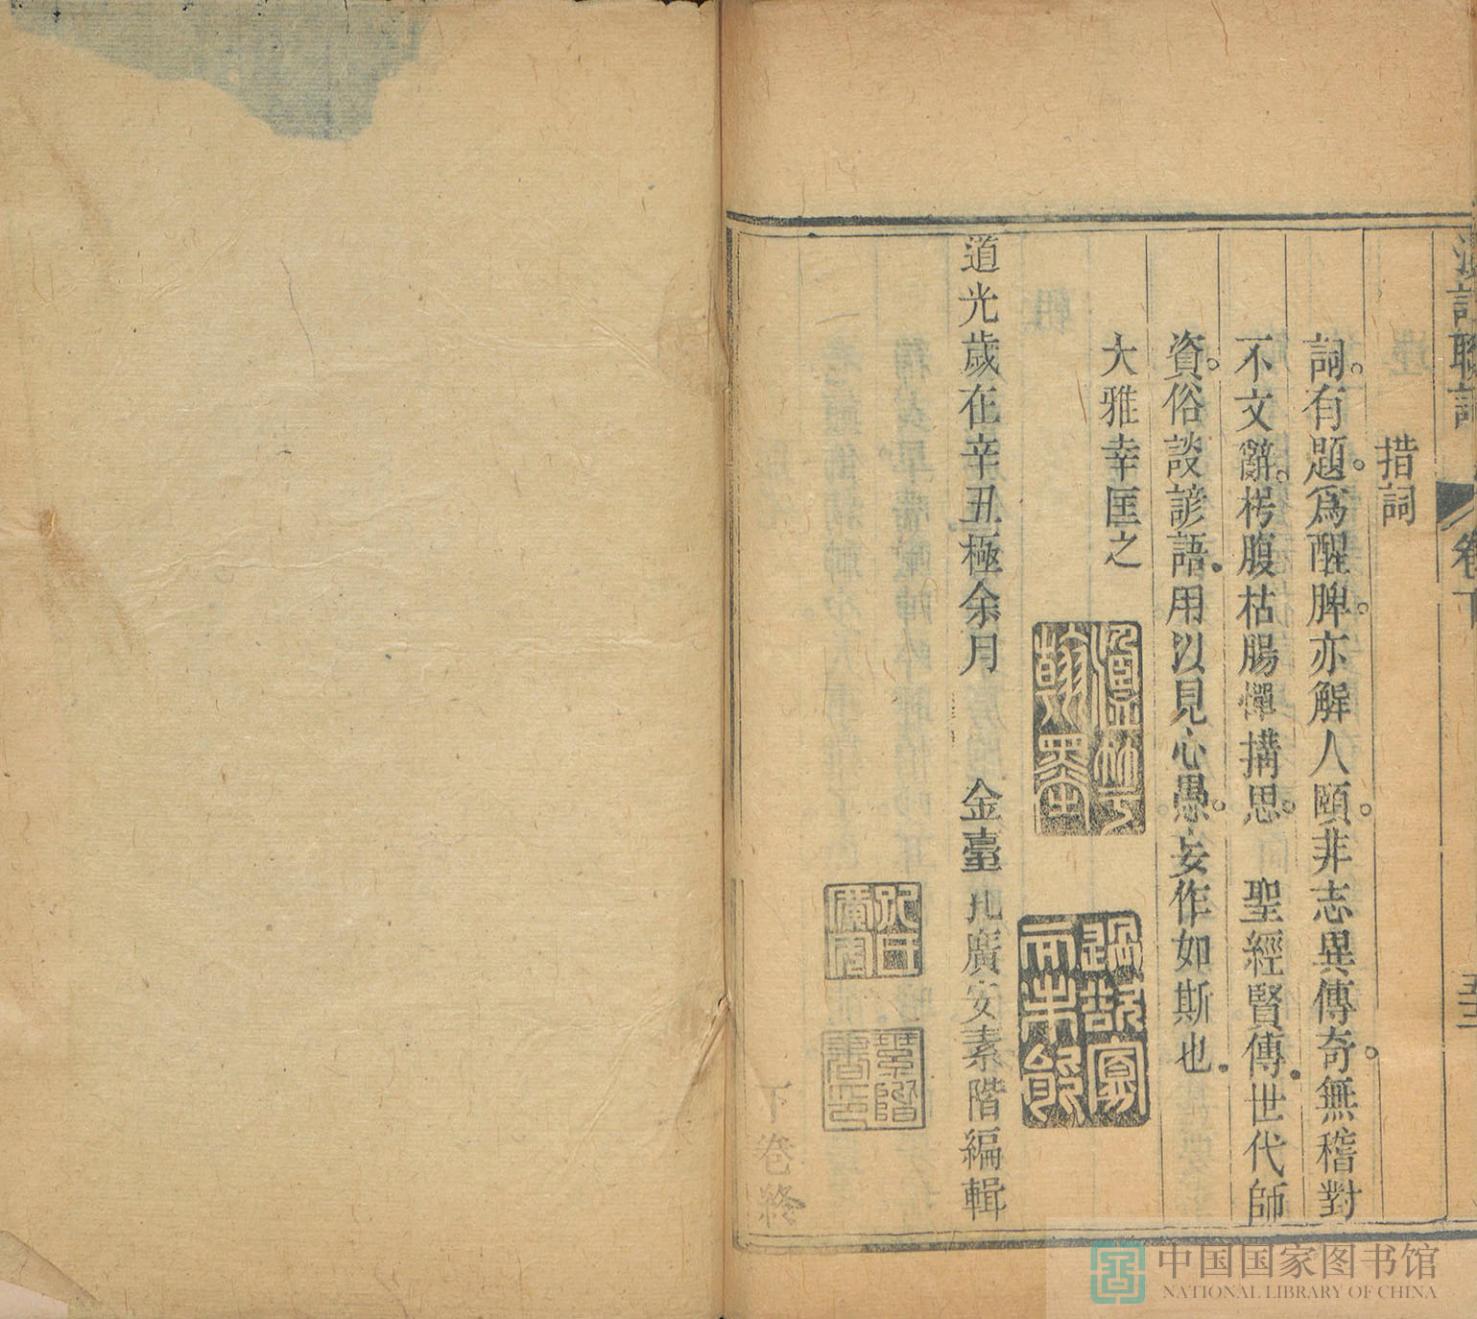 聯
卷下
措詞
詞。有題。爲醒脾。亦解人頤。非志異傳奇。無稽對
不文辭。枵腹枯腸憚搆思。聖經賢傳。世代師
資。俗談諺語。用以見心愚。妄作如斯也。
大雅幸匡之
道光歲在辛丑極余月 金臺孔廣安素階編輯
下卷終
中国国家图书馆
NATIONAL LIBRARY OF CHINA